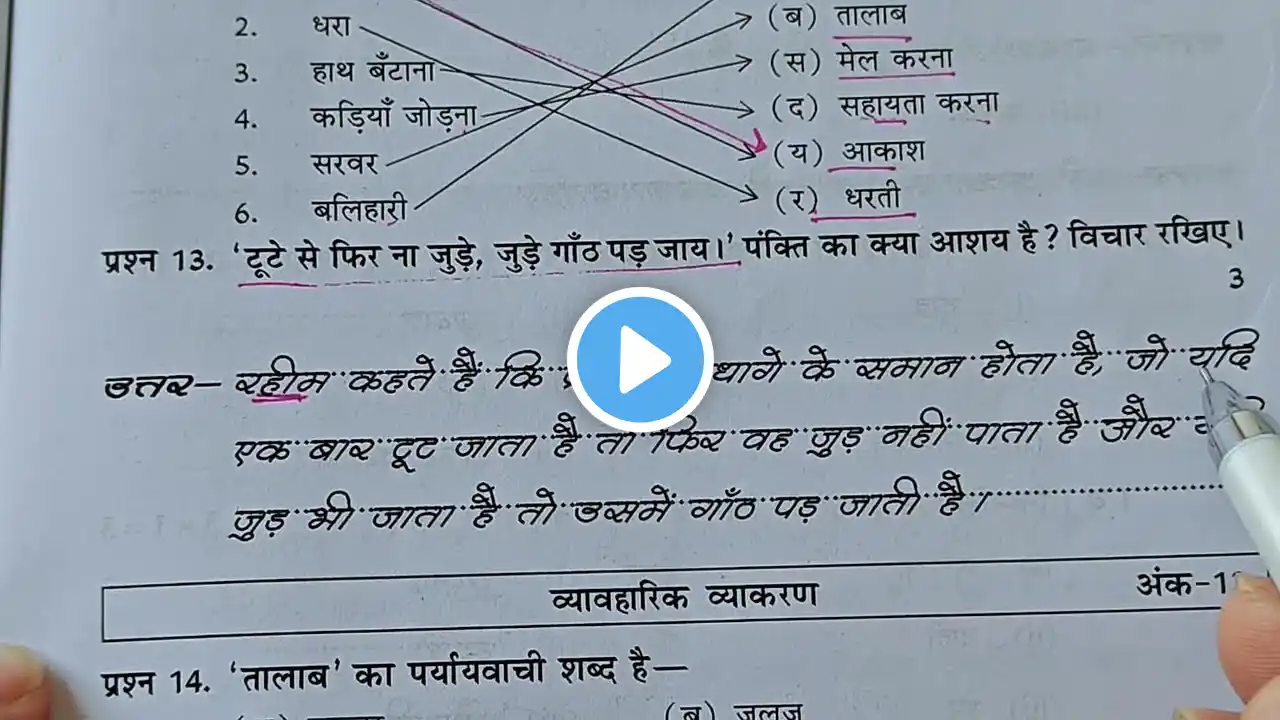 2. धरा (ब) तालाब
3. हाथ बँटाना (स) मेल करना
4. कड़ियाँ जोड़ना (द) सहायता करना
5. सरवर (य) आकाश
6. बलिहारी (र) धरती
प्रश्न 13. ‘टूटे से फिर ना जुड़े, जुड़े गाँठ पड़ जाय।’ पंक्ति का क्या आशय है? विचार रखिए।
3
उत्तर– रहीम कहते हैं कि धागे के समान होता है, जो यदि
एक बार टूट जाता है तो फिर वह जुड़ नहीं पाता है और
जुड़ भी जाता है तो उसमें गाँठ पड़ जाती है।
व्यावहारिक व्याकरण अंक-
प्रश्न 14. ‘तालाब’ का पर्यायवाची शब्द है—
(ब) जलज